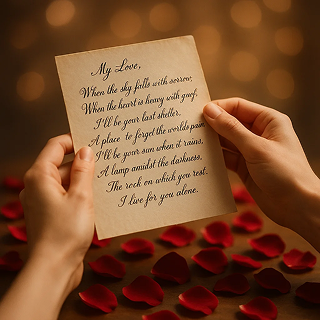 My Love,
When the sky falls with sorrow,
When the heart is heavy with guef,
I'll be your last shelter,
A place to forget the worlds pain.
I'll be your sun when it rains,
A lamp amidst the darkness,
The rock on which you rest.
I live for you alone.